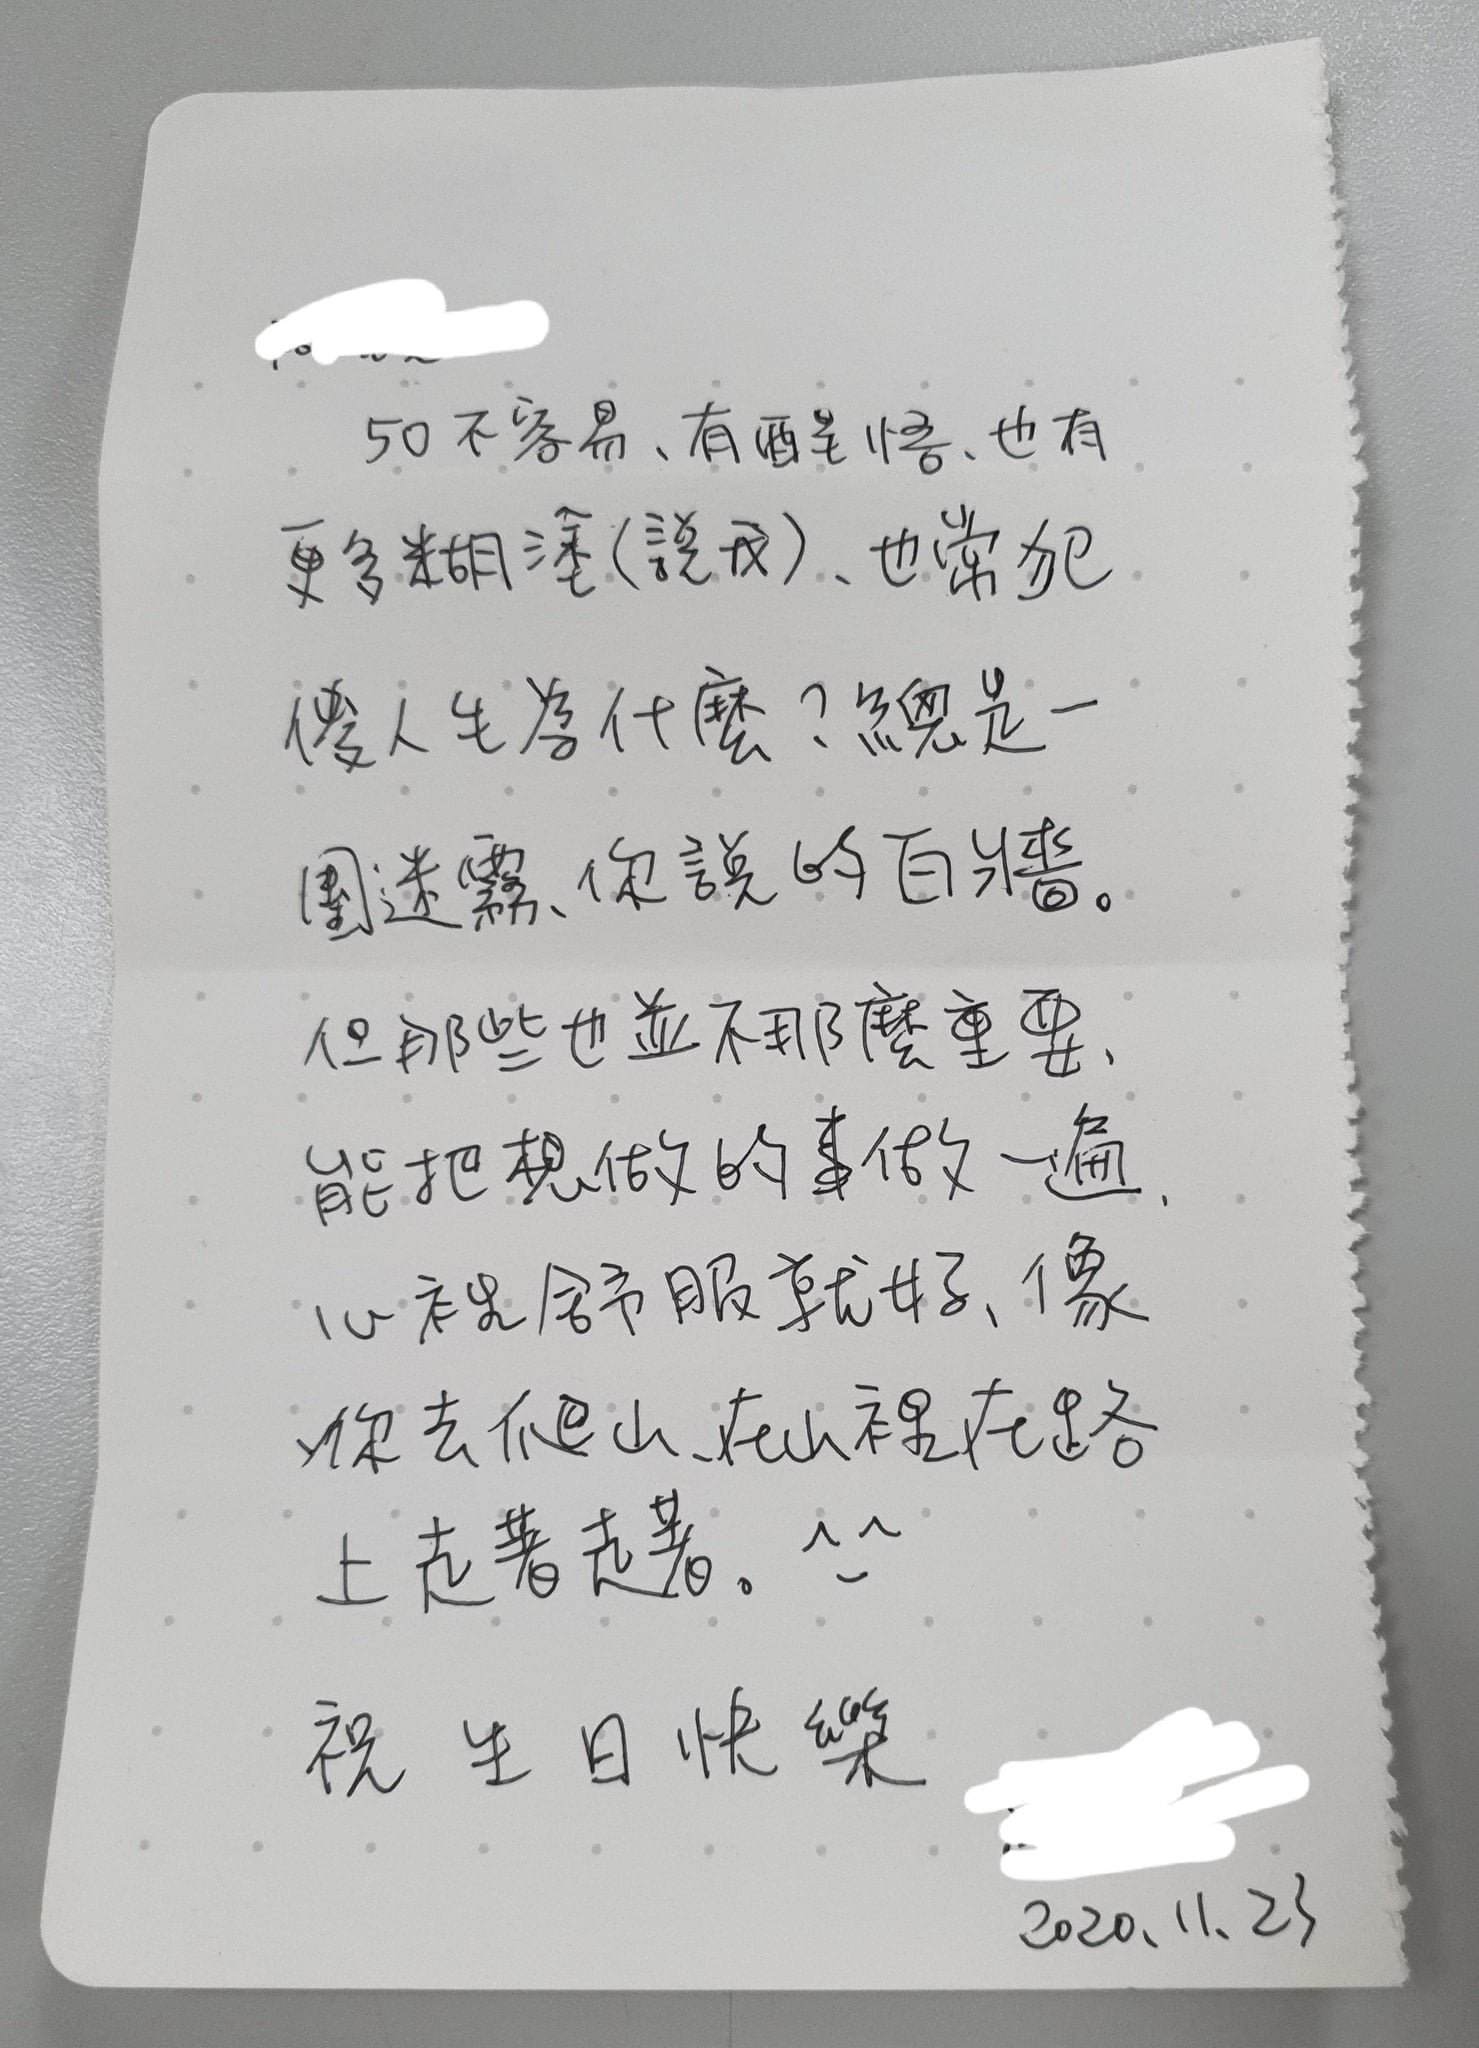 50不容易、有醒悟、也有
更多糊塗(說我)、也常犯
傻人生為什麼？總是一
團迷霧、你說的白牆。
但那些也並不那麼重要、
能把想做的事做一遍、
心裡舒服就好、像
你去爬山、在山裡在路
上走著走著。^_^
祝 生日快樂
2020.11.23